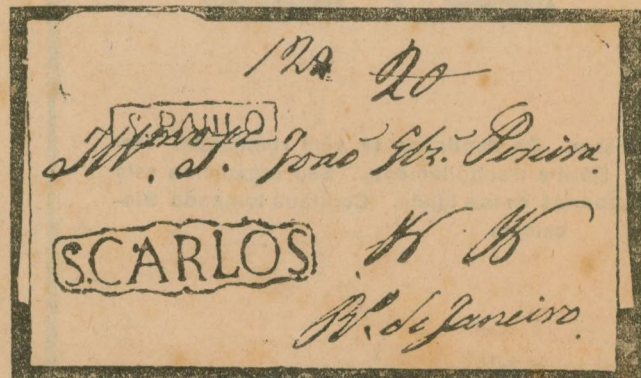 120 20
S. PAULO
Illmo. Sr. João Glz. Pereira
S. CARLOS
Rº. de Janeiro